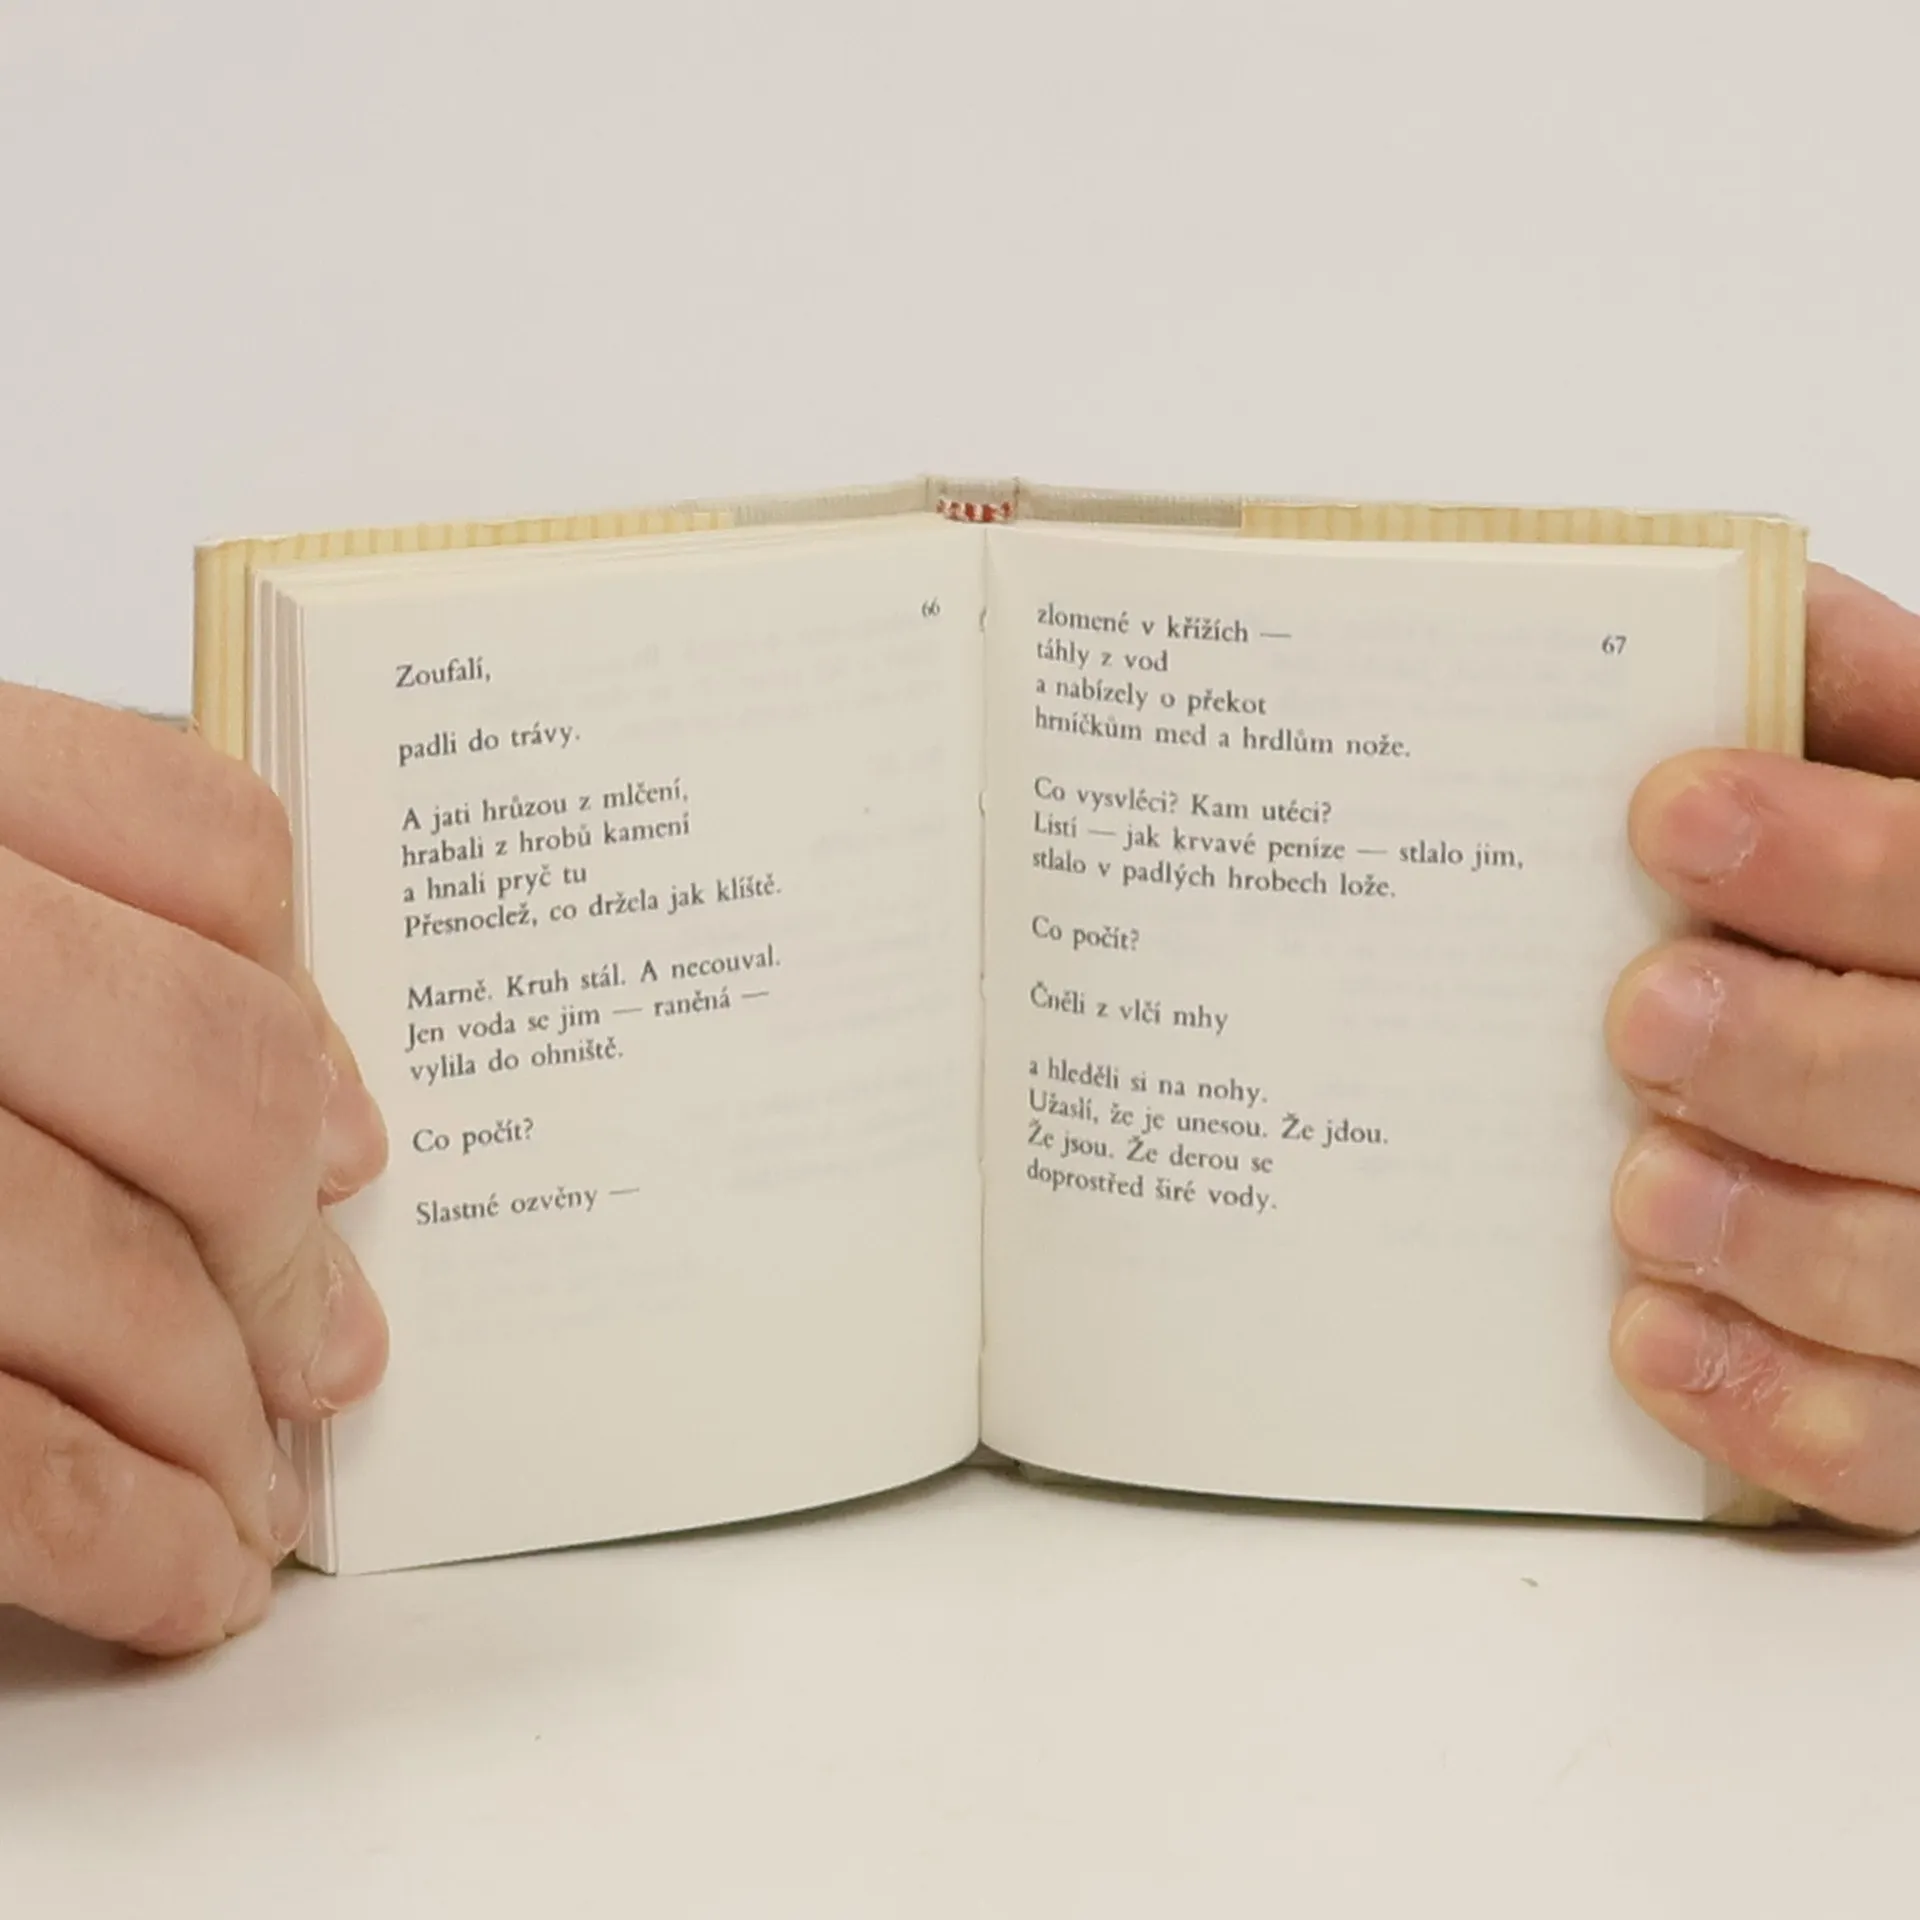 66
Zoufalí,
padli do trávy.
A jati hrůzou z mlčení,
hrabali z hrobů kamení
a hnali pryč tu
Přesnoclež, co držela jak klíště.
Marně. Kruh stál. A necouval.
Jen voda se jim — raněná —
vylila do ohniště.
Co počít?
Slastné ozvěny —
67
zlomené v křížích —
táhly z vod
a nabízely o překot
hrníčkům med a hrdlům nože.
Co vysvléci? Kam utéci?
Listí — jak krvavé peníze — stlalo jim,
stlalo v padlých hrobech lože.
Co počít?
Čněli z vlčí mhy
a hleděli si na nohy.
Užaslí, že je unesou. Že jdou.
Že jsou. Že derou se
doprostřed širé vody.